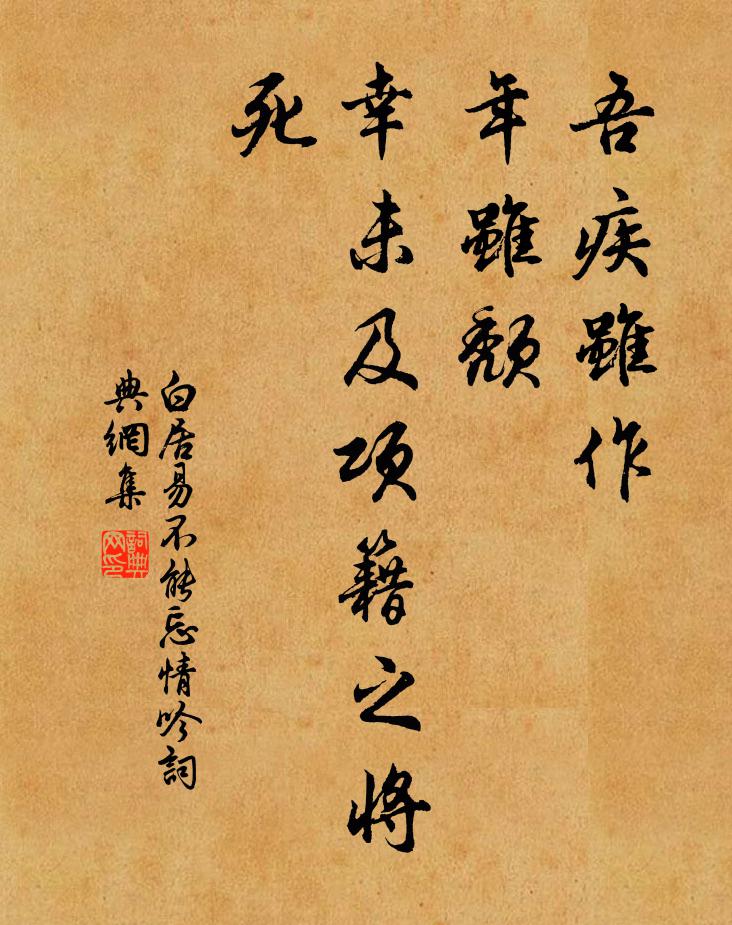 吾疾雖作
年雖頹
幸未及項籍之將
死
白居易不能忘情吟詞
典網集
詞典
网印